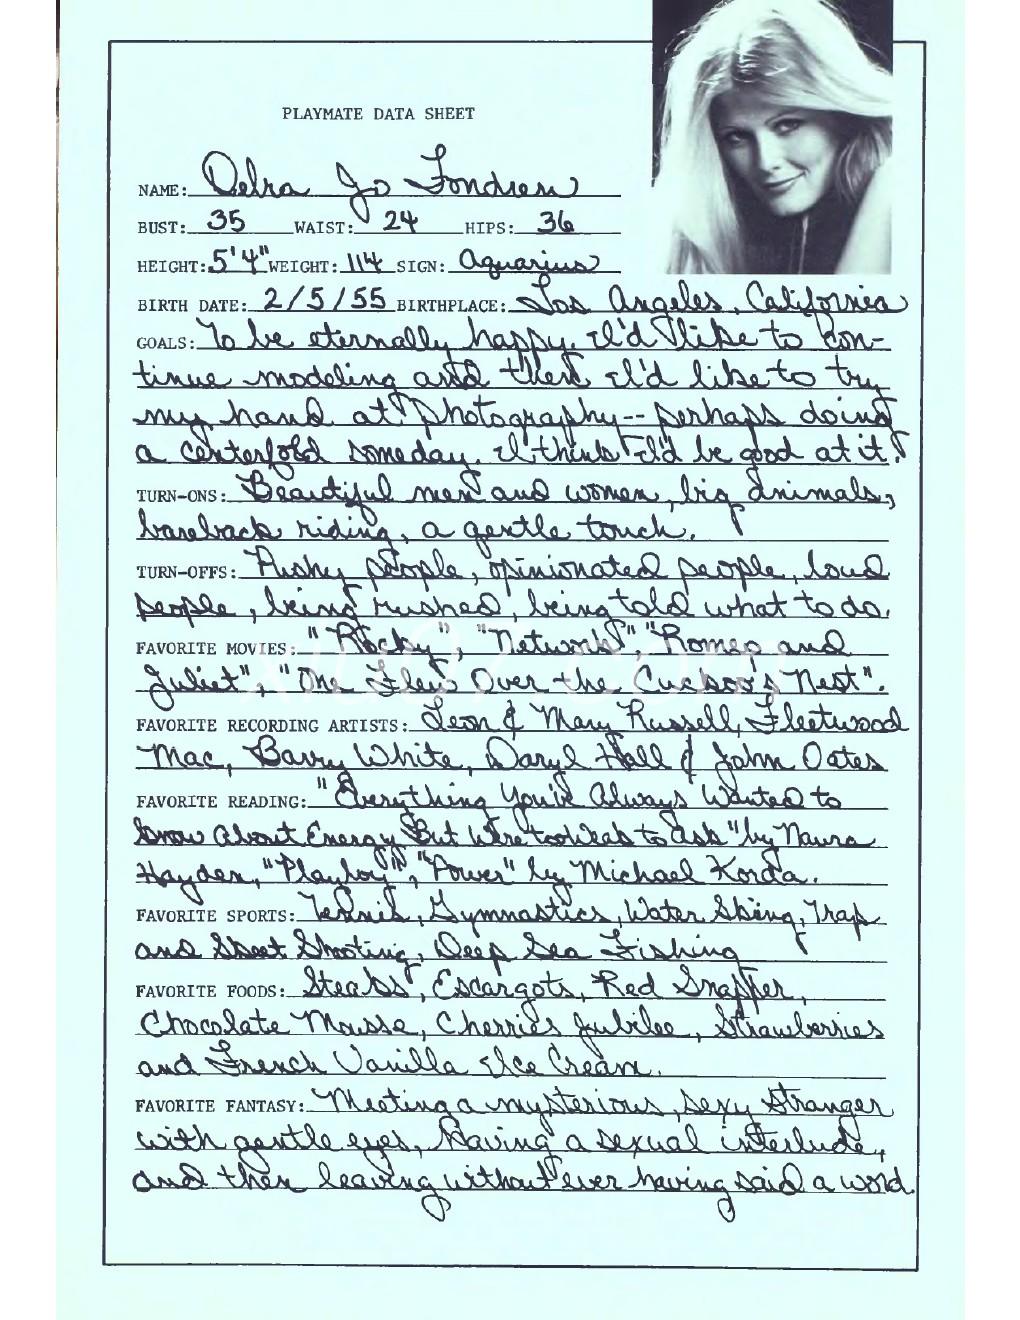 PLAYMATE DATA SHEET
NAME: Debra Jo Fondren
BUST: 35 WAIST: 24 HIPS: 36
HEIGHT: 5'4" WEIGHT: 114 SIGN: Aquarius
BIRTH DATE: 2/5/55 BIRTHPLACE: Los Angeles, California
GOALS: To be eternally happy. I'd like to con-
tinue modeling and then I'd like to try
my hand at photography--perhaps doing
a centerfold someday. I think I'd be good at it!
TURN-ONS: Beautiful men and women, big animals,
bareback riding, a gentle touch.
TURN-OFFS: Pushy people, opinionated people, loud
people, being rushed, being told what to do.
FAVORITE MOVIES: "Rocky", "Network", "Romeo and
Juliet", "One Flew Over the Cuckoo's Nest".
FAVORITE RECORDING ARTISTS: Leon & Mary Russell, Fleetwood
Mac, Barry White, Daryl Hall & John Oates
FAVORITE READING: "Everything You've Always Wanted to
Know About Energy But Were too Weak to Ask" by Naura
Hayden, "Playboy", "Power" by Michael Korda.
FAVORITE SPORTS: Tennis, Gymnastics, Water Skiing, Trap
and Skeet Shooting, Deep Sea Fishing
FAVORITE FOODS: Steaks, Escargots, Red Snapper,
Chocolate Mousse, Cherries Jubilee, Strawberries
and French Vanilla Ice Cream.
FAVORITE FANTASY: Meeting a mysterious, sexy stranger
with gentle eyes, having a sexual interlude,
and then leaving without ever having said a word.